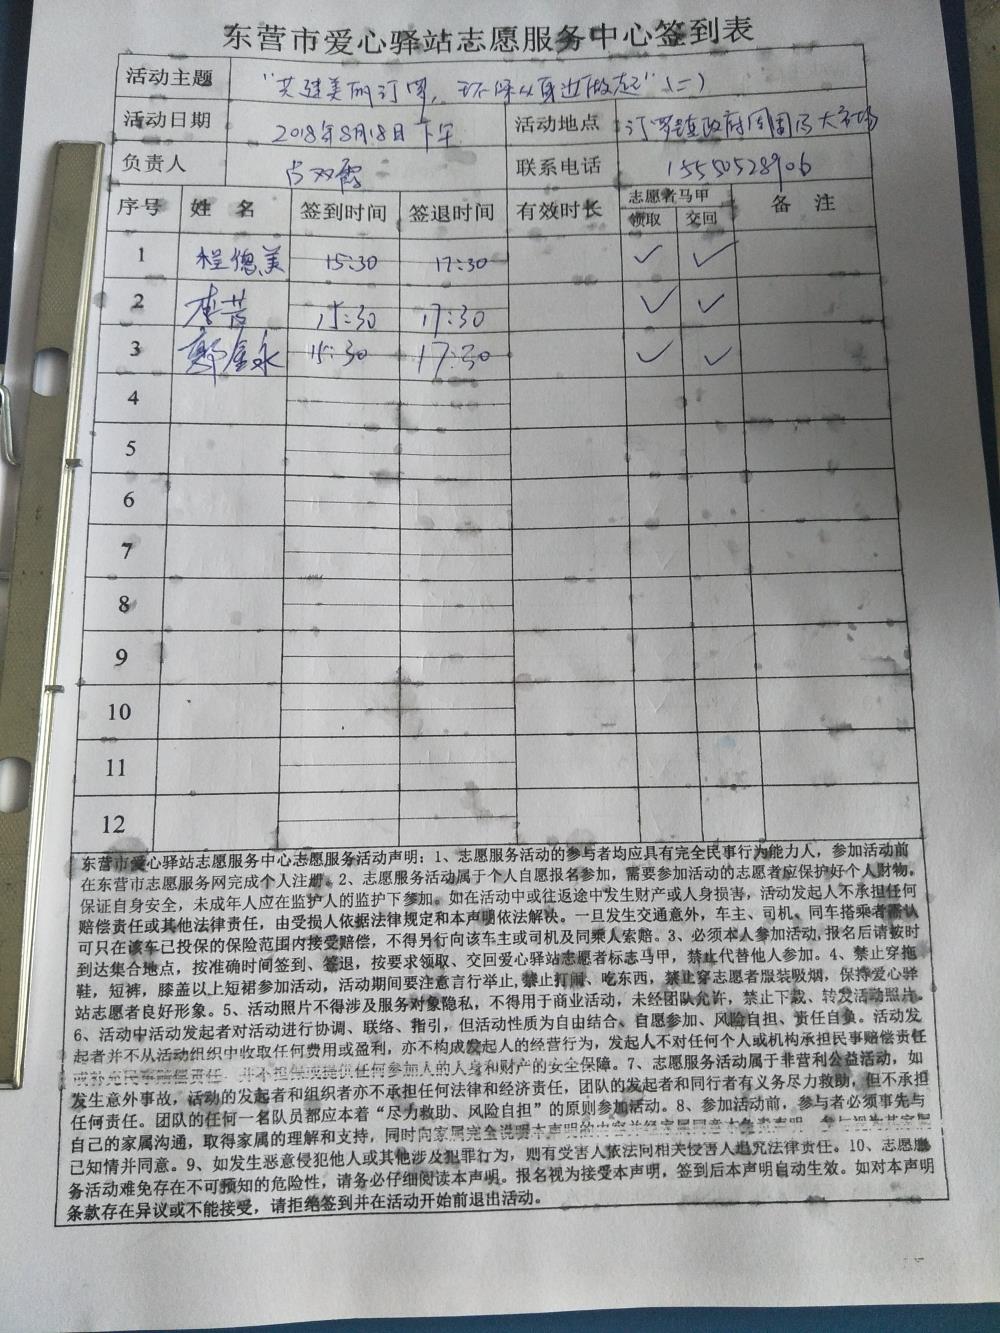 东营市爱心驿站志愿服务中心签到表
活动主题 “共建美丽汀罗，环保从身边做起”（二）
活动日期 2018年8月18日下午 活动地点 汀罗镇政府周围及大市场
负责人 占双霞 联系电话 15550528906
序号 姓名 签到时间 签退时间 有效时长 志愿者马甲 备注
领取 交回
1 程德美 15:30 17:30 ✓ ✓
2 李芳 15:30 17:30 ✓ ✓
3 郭金永 15:30 17:30 ✓ ✓
4
5
6
7
8
9
10
11
12
东营市爱心驿站志愿服务中心志愿服务活动声明：1、志愿服务活动的参与者均应具有完全民事行为能力人，参加活动前
在东营市志愿服务网完成个人注册。2、志愿服务活动属于个人自愿报名参加，需要参加活动的志愿者应保护好个人财物。
保证自身安全，未成年人应在监护人的监护下参加。如在活动中或往返途中发生财产或人身损害，活动发起人不承担任何
赔偿责任或其他法律责任，由受损人依据法律规定和本声明依法解决。一旦发生交通意外，车主、司机、同车搭乘者需认
可只在该车已投保的保险范围内接受赔偿，不得另行向该车主或司机及同乘人索赔。3、必须本人参加活动,报名后请按时
到达集合地点，按准确时间签到、签退，按要求领取、交回爱心驿站志愿者标志马甲，禁止代替他人参加。4、禁止穿拖
鞋，短裤，膝盖以上短裙参加活动，活动期间要注意言行举止,禁止打闹、吃东西，禁止穿志愿者服装吸烟，保持爱心驿
站志愿者良好形象。5、活动照片不得涉及服务对象隐私，不得用于商业活动，未经团队允许，禁止下载、转发活动照片。
6、活动中活动发起者对活动进行协调、联络、指引，但活动性质为自由结合、自愿参加、风险自担、责任自负。活动发
起者并不从活动组织中收取任何费用或盈利，亦不构成发起人的经营行为，发起人不对任何个人或机构承担民事赔偿责任
或补充民事赔偿责任，并不担保或提供任何参加人的人身和财产的安全保障。7、志愿服务活动属于非营利公益活动，如
发生意外事故，活动的发起者和组织者亦不承担任何法律和经济责任，团队的发起者和同行者有义务尽力救助，但不承担
任何责任。团队的任何一名队员都应本着“尽力救助、风险自担”的原则参加活动。8、参加活动前，参与者必须事先与
自己的家属沟通，取得家属的理解和支持，同时向家属完全说明本声明的内容并经家属同意本免责声明，参与视为其家属
己知情并同意。9、如发生恶意侵犯他人或其他涉及犯罪行为，则有受害人依法向相关侵害人追究法律责任。10、志愿服
务活动难免存在不可预知的危险性，请务必仔细阅读本声明。报名视为接受本声明，签到后本声明自动生效。如对本声明
条款存在异议或不能接受，请拒绝签到并在活动开始前退出活动。